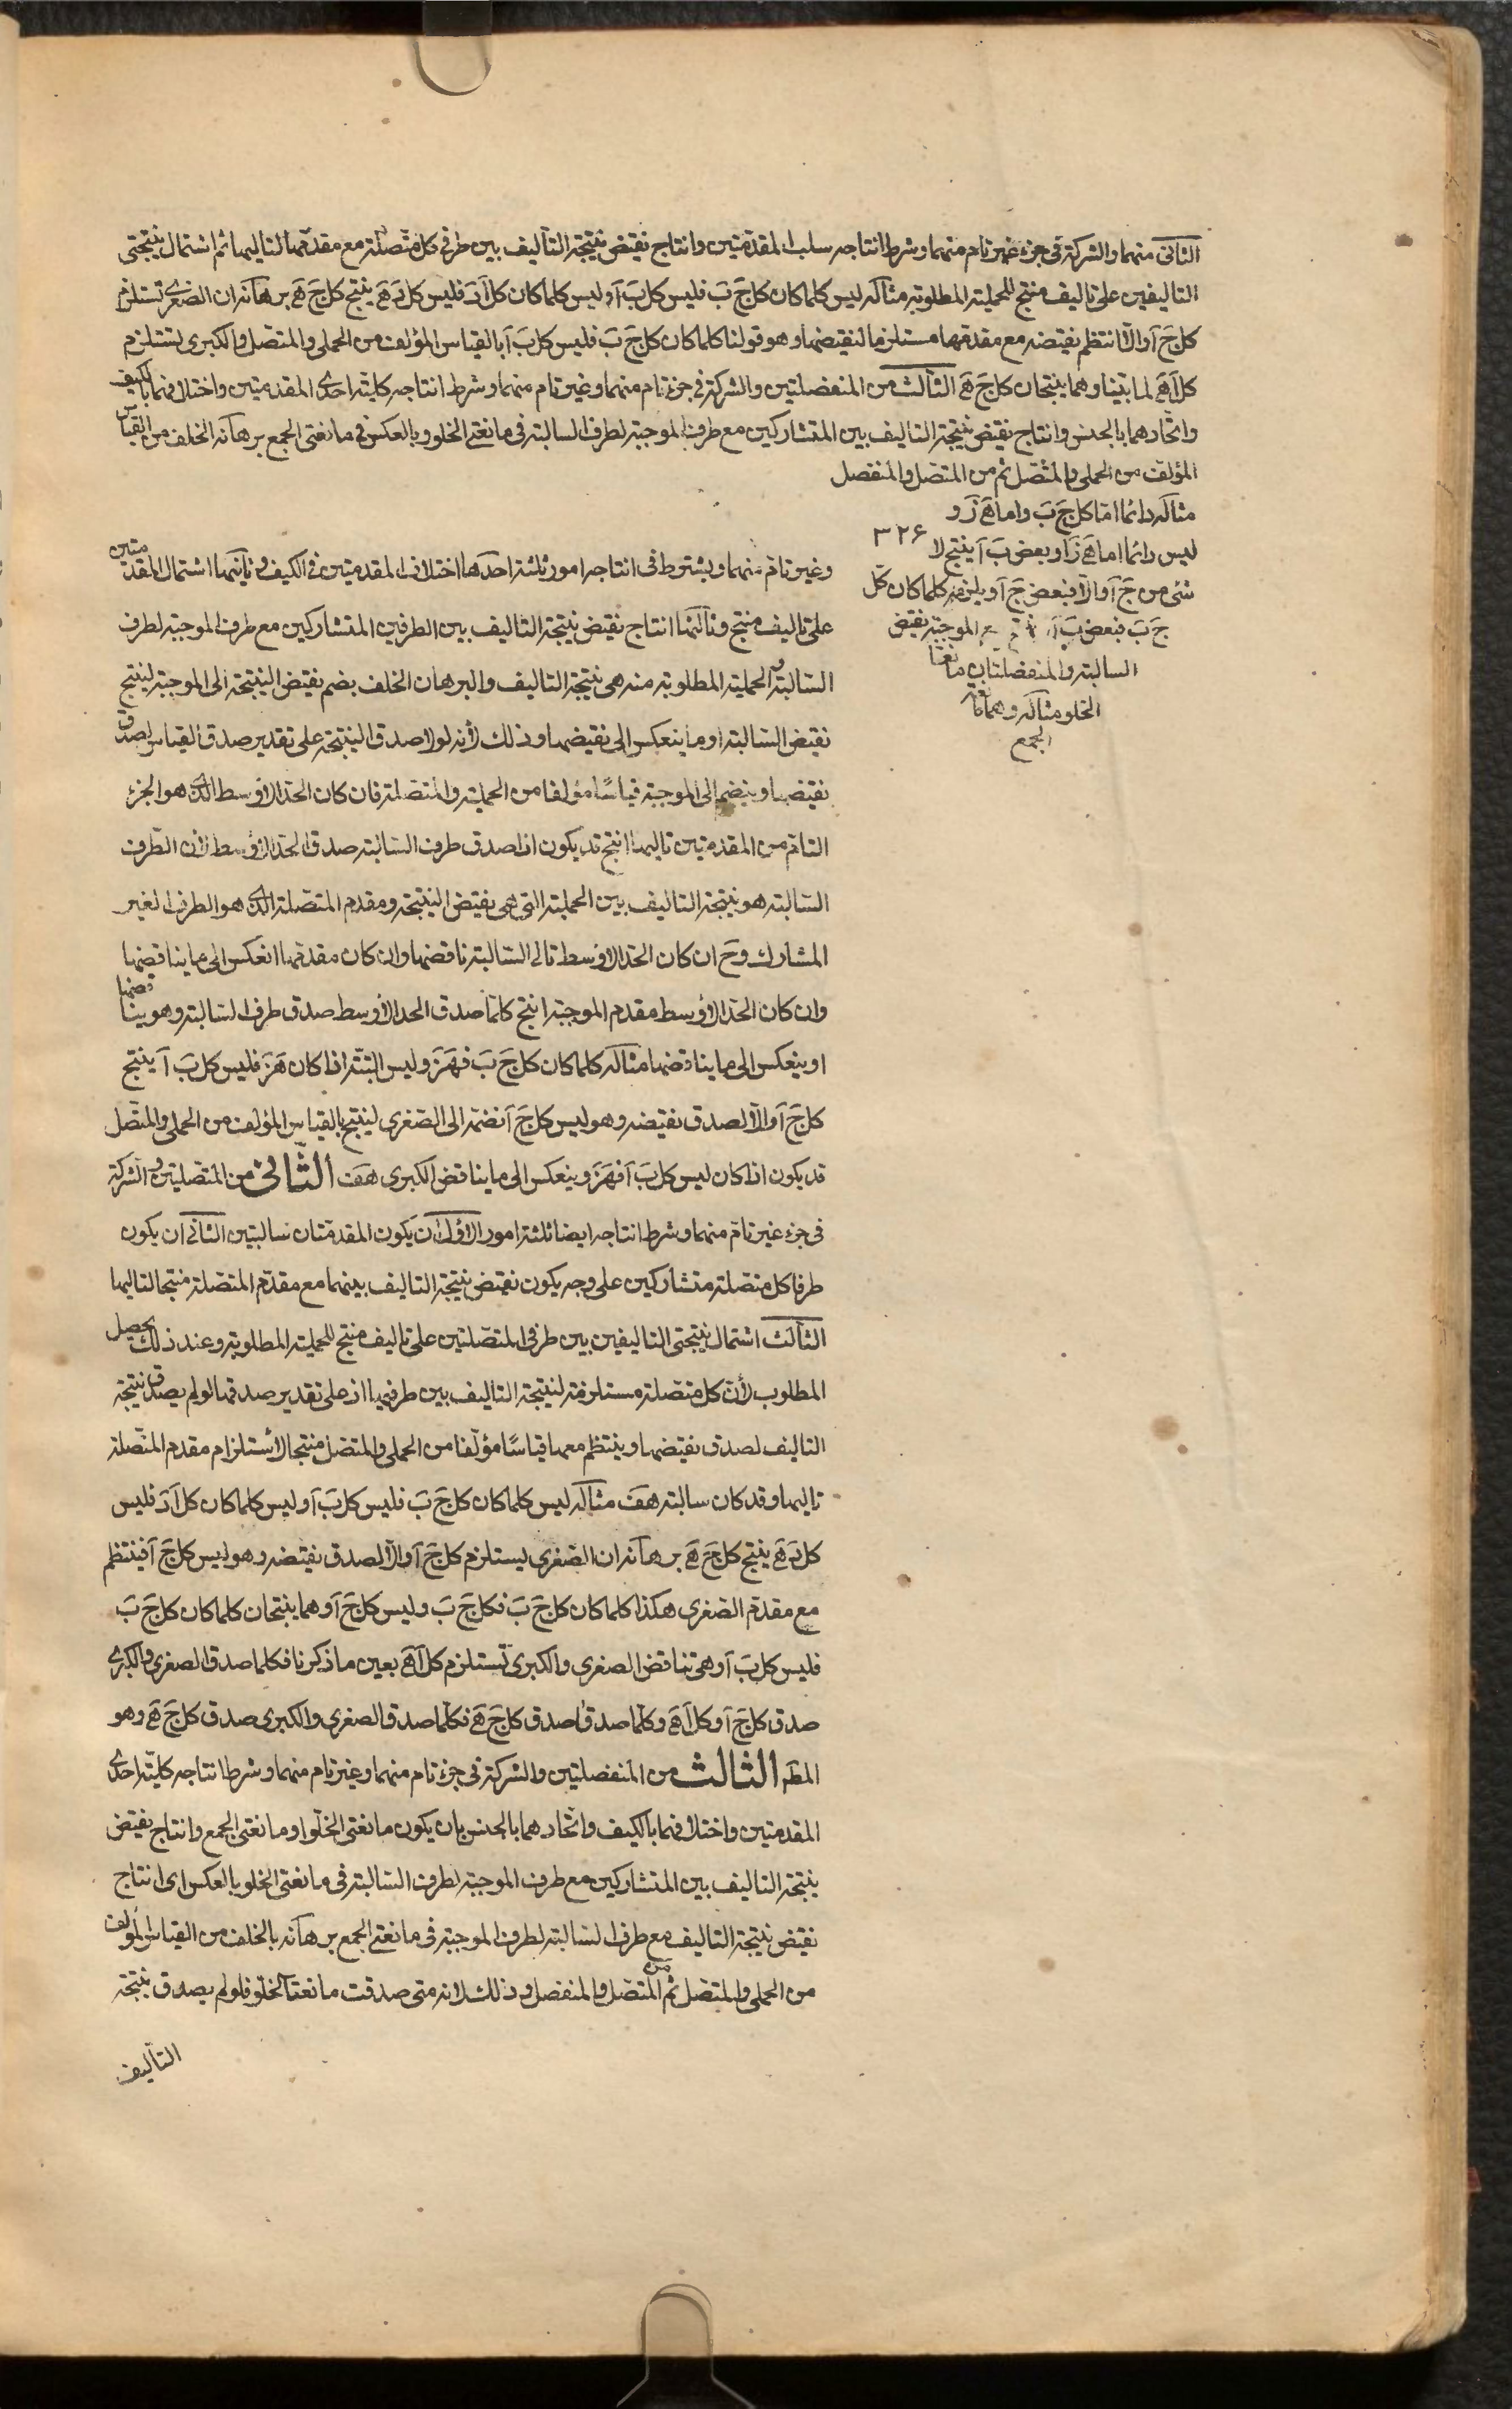 الثانى منهما والشركة فى جزء غير تام منهما وشرط انتاجه سلب المقدمتين وانتاج نقيض نتيجة التأليف بين طرفى كل متصلة مع مقدمها لتاليها ثم اشتمال نتيجتى
التاليفين على تاليف منتج للحملية المطلوبة مثاله ليس كلما كان كل جَ بَ فليس كل بَ آ وليس كلما كان كل آ دَ فليس كل دَ هَ ينتج كل جَ هَ برهانه ان الصغرى تستلزم
كل جَ آ والا انتظم نقيضه مع مقدمها مستلزما لنقيضها وهو قولنا كلما كان كل جَ بَ فليس كل بَ آ بالقياس المؤلف من الحملى والمتصل والكبرى تستلزم
كل آ هَ لما بينا وهما ينتجان كل جَ هَ الثالث من المنفصلتين والشركة فى جزء تام منهما وغير تام منهما وشرط انتاجه كلية احدى المقدمتين واختلافهما بالكيف
واتحادهما بالجنس وانتاج نقيض نتيجة التاليف بين المتشاركين مع طرف الموجبة لطرف السالبة فى مانعتى الخلو وبالعكس فى مانعتى الجمع برهانه الخلف من القياس
المؤلف من الحملى والمتصل ثم من المتصل والمنفصل
مثاله دائما اما كل جَ بَ واما هَ زَ و
ليس دائما اما هَ زَ او بعض بَ آ ينتج لا
شئ من جَ آ والا فبعض جَ آ ويلزمه كلما كان كل
جَ بَ فبعض بَ آ الموجبة نقيض
السالبة والمنفصلتان مانعتا
الخلو مثاله وهما مانعتا
الجمع
٣٢۶
وغير تام منهما ويشترط فى انتاجه امور ثلثة احدها اختلاف المقدمتين فى الكيف وثانيها اشتمال المقدمتين
على تاليف منتج وثالثها انتاج نقيض نتيجة التاليف بين الطرفين المتشاركين مع طرف الموجبة لطرف
السالبة والحملية المطلوبة منه هى نتيجة التاليف والبرهان الخلف بضم نقيض النتيجة الى الموجبة لينتج
نقيض السالبة او ما ينعكس الى نقيضها وذلك لأنه لولا صدق النتيجة على تقدير صدق القياس لصدق
نقيضها وينضم الى الموجبة قياسًا مؤلفا من الحملية والمتصلة فان كان الحد الاوسط الذى هو الجزء
التام من المقدمتين تاليها انتج قد يكون اذا صدق طرف السالبة صدق الحد الاوسط لأن الطرف
السالبة هو نتيجة التاليف بين الحملية التى هى نقيض النتيجة ومقدم المتصلة الذى هو الطرف الغير
المشارك وحَ ان كان الحد الاوسط تالى السالبة ناقضها وان كان مقدمها انعكس الى ما يناقضها
وان كان الحد الاوسط مقدم الموجبة انتج كلما صدق الحد الاوسط صدق طرف السالبة وهو يناقضها
او ينعكس الى ما يناقضها مثاله كلما كان كل جَ بَ فهَزَ وليس البتة اذا كان هَزَ فليس كل بَ آ ينتج
كل جَ آ والا لصدق نقيضه وهو ليس كل جَ آ نضمه الى الصغرى لينتج بالقياس المؤلف من الحملى والمتصل
قد يكون اذا كان ليس كل بَ آ فهَزَ وينعكس الى ما يناقض الكبرى هَفَ الثانى من المتصلتين والشركة
فى جزء غير تام منهما وشرط انتاجه ايضا ثلثة امور الاول ان يكون المقدمتان سالبتين الثانى ان يكون
طرفا كل متصلة متشاركين على وجه يكون نقيض نتيجة التاليف بينهما مع مقدم المتصلة منتجا لتاليها
الثالث اشتمال نتيجتى التاليفين بين طرفى المتصلتين على تاليف منتج للحملية المطلوبة وعند ذلك يحصل
المطلوب لأن كل متصلة مستلزمة لنتيجة التاليف بين طرفيها اذ على تقدير صدقها لو لم يصدق نتيجة
التاليف لصدق نقيضها وينتظم معها قياسًا مؤلفا من الحملى والمتصل منتجا لاستلزام مقدم المتصلة
تاليها وقد كان سالبة هَفَ مثاله ليس كلما كان كل جَ بَ فليس كل بَ آ وليس كلما كان كل آ دَ فليس
كل دَ هَ ينتج كل جَ هَ برهانه ان الصغرى يستلزم كل جَ آ والا لصدق نقيضه وهو ليس كل جَ آ فينتظم
مع مقدم الصغرى هكذا كلما كان كل جَ بَ فكل جَ بَ وليس كل جَ آ وهما ينتجان كلما كان كل جَ بَ
فليس كل بَ آ وهى تناقض الصغرى والكبرى تستلزم كل آ هَ بعين ما ذكرنا فكلما صدق الصغرى والكبرى
صدق كل جَ آ وكل آ هَ وكلما صدقا صدق كل جَ هَ فكلما صدق الصغرى والكبرى صدق كل جَ هَ وهو
المطم الثالث من المنفصلتين والشركة فى جزء تام منهما وغير تام منهما وشرط انتاجه كلية احدى
المقدمتين واختلافهما بالكيف واتحادهما بالجنس بان يكون مانعتى الخلو او مانعتى الجمع وانتاج نقيض
نتيجة التاليف بين المتشاركين مع طرف الموجبة لطرف السالبة فى مانعتى الخلو بالعكس اى انتاج
نقيض نتيجة التاليف مع طرف السالبة لطرف الموجبة فى مانعتى الجمع برهانه بالخلف من القياس المؤلف
من الحملى والمتصل ثم من المتصل والمنفصل وذلك لانه متى صدقت مانعتا الخلو فلو لم يصدق نتيجة
التأليف